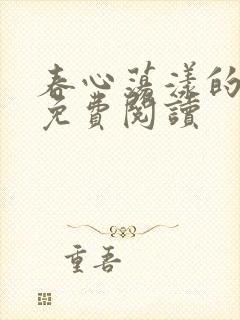 春心蕩漾的
免費閱讀
重吾